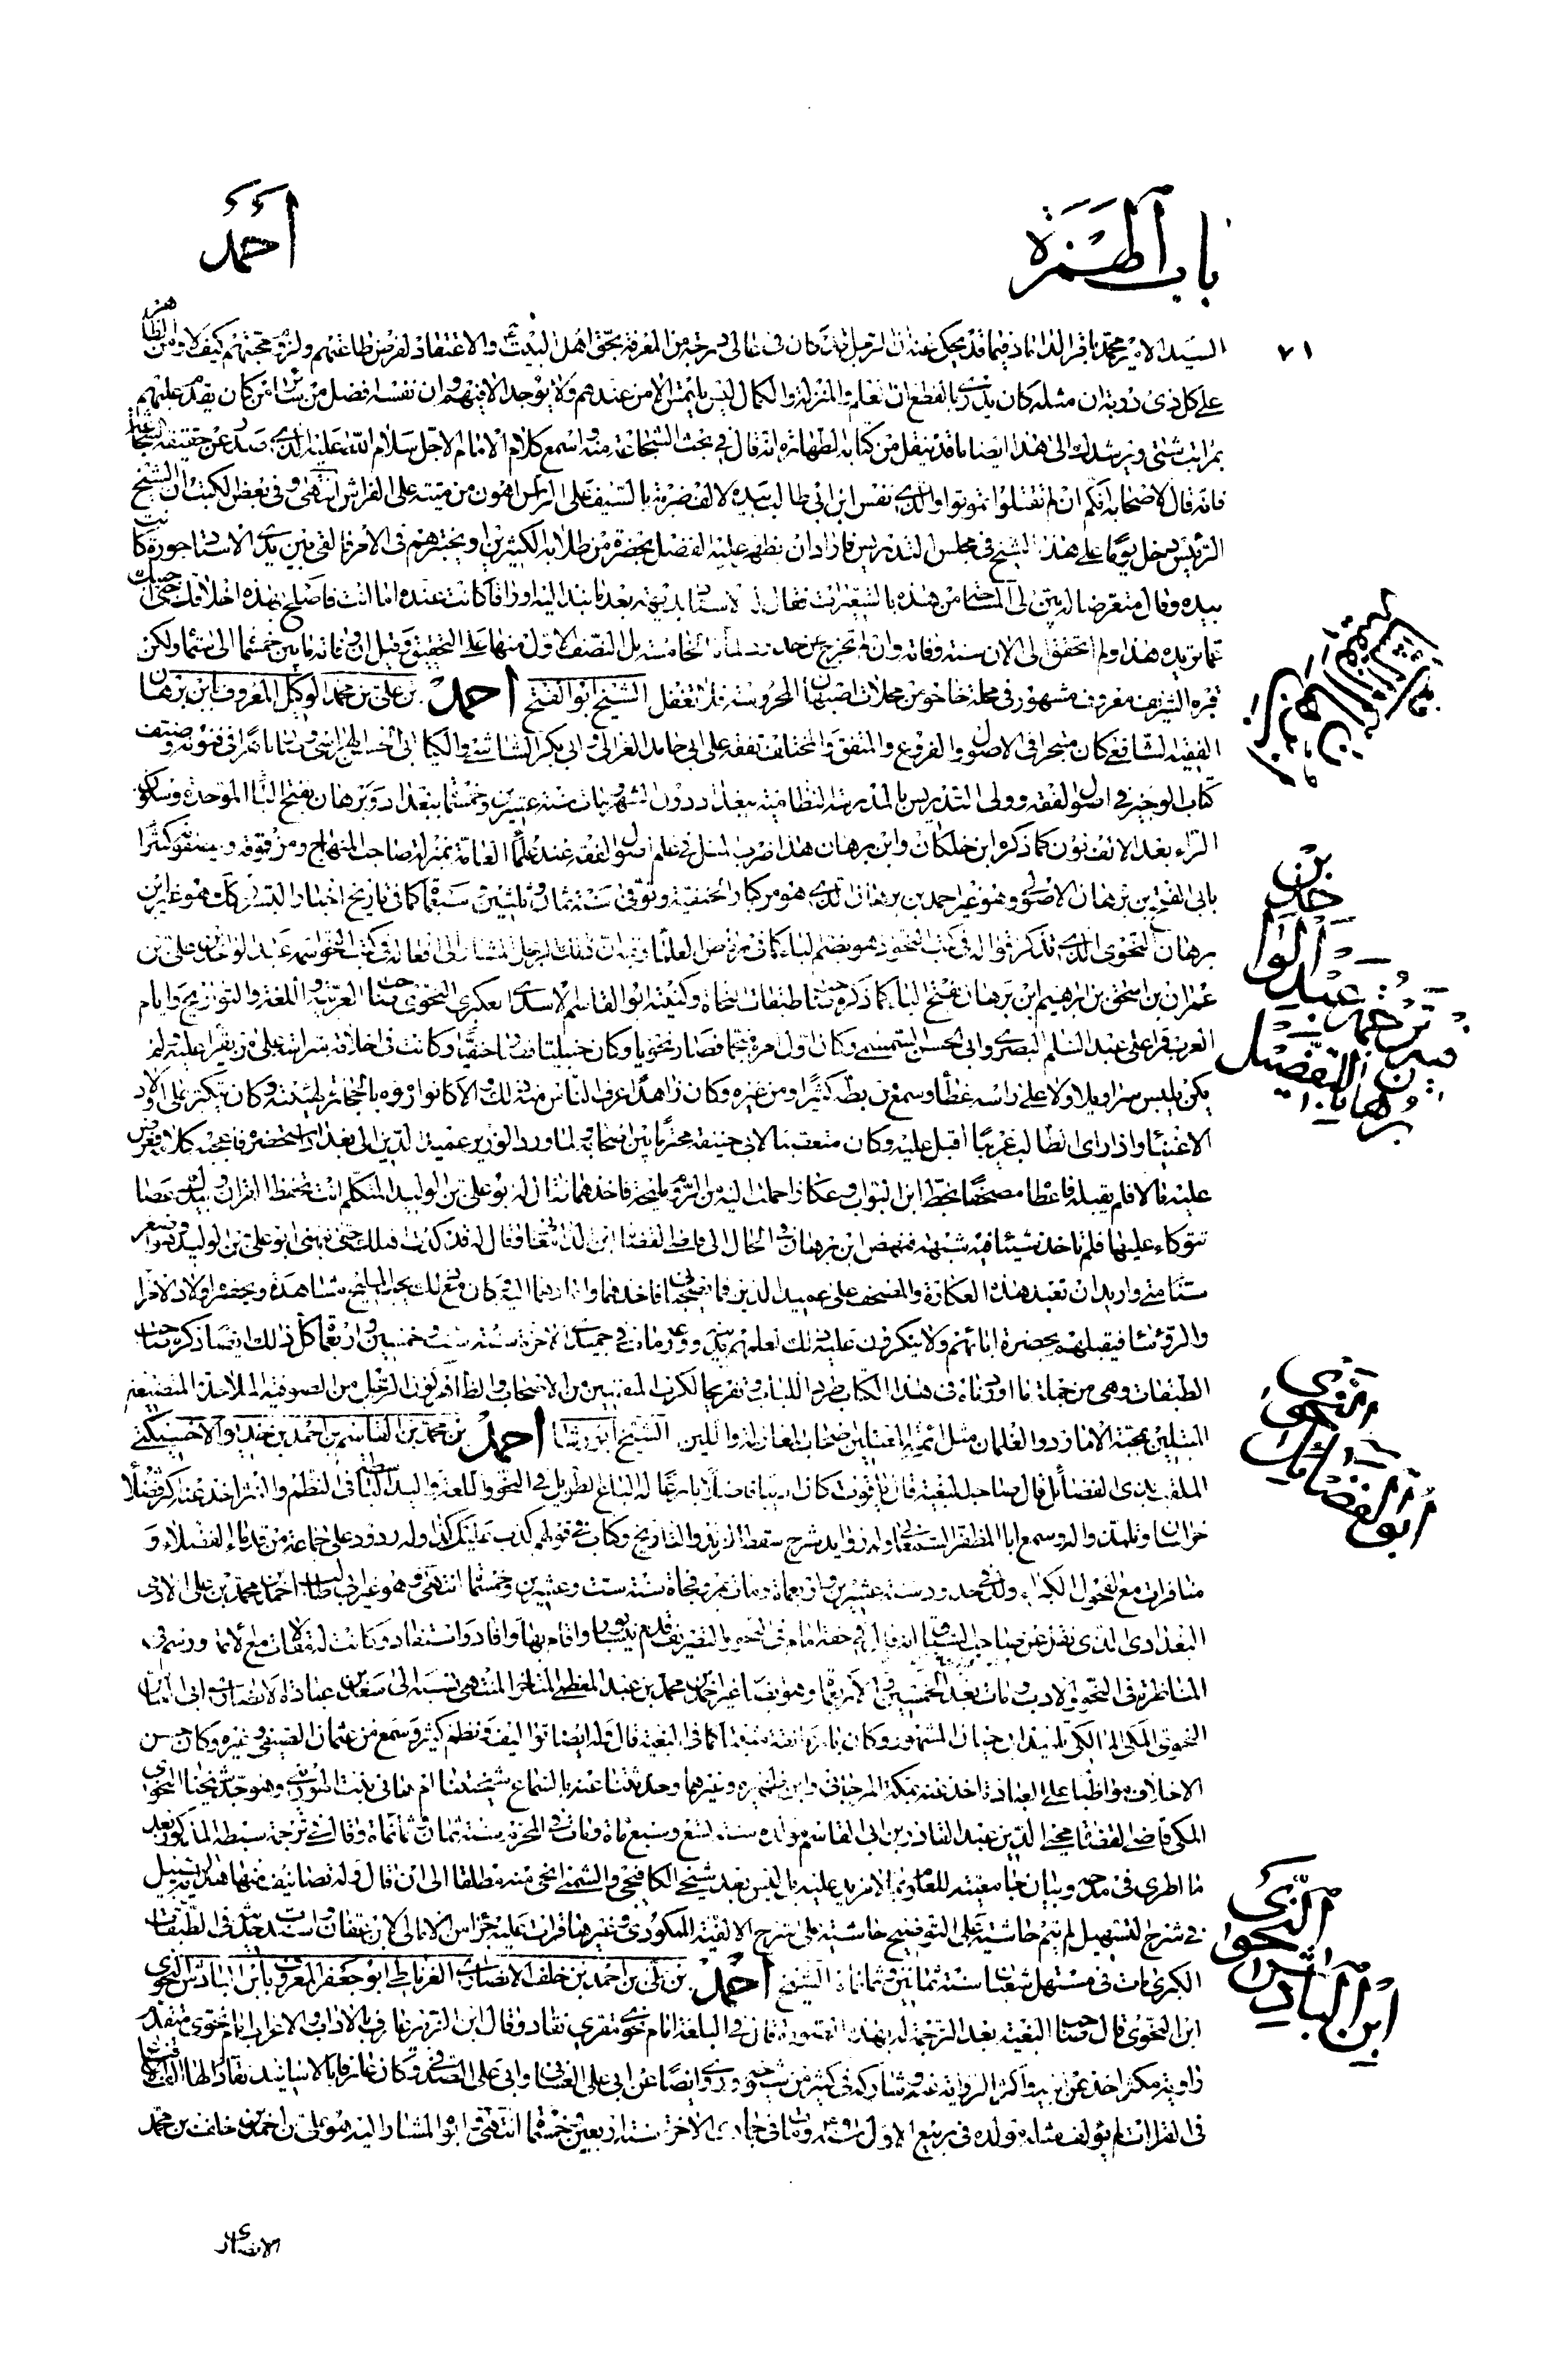 باب الهمزة
أحمد
٧١
السيد الامير محمد باقر الداماد فيما قد يحكى عنه ان الرجل كان فى عالى درجة من المعرفة بحق اهل البيت والاعتقاد لفرض طاعتهم ولزوم محبتهم كيف لا ومن الظاهر
على كل ذى روية ان مثله كان يدرى بالقطع ان العلم والمنزلة والكمال ليس يلتمس الا من عندهم ولا يوجد الا فيهم وان نفسه افضل من كان يقدم عليهم
بمراتب شتى ويرشدك الى هذا ايضا ما قد ينقل من كتابه الطهارة انه قال فى بحث الشجاعة منه واسمع كلام الامام الاجل سلام الله عليه الذى صدر عن حقيقة الشجاعة
فانه قال لاصحابه انكم ان لم تقتلوا تموتوا والذى نفس ابن ابى طالب بيده لالف ضربة بالسيف على الراس اهون من ميتة على الفراش انتهى وفى بعض الكتب ان الشيخ
الرئيس دخل يوما على هذا الشيخ فى مجلس التدريس فاراد ان يظهر عليه الفضل بحضرة من طلابه الكثيرين او يختبرهم فى الامر فالقى بين يدى الاستاد جوزة كانت
بيده وقال متعرضا له بين لى المساحة من هذه بالشعيرات فقال له الاستاد بديهة بعد ما نبذ اليه اوراقا كانت عنده اما انت فاصلح بهذه اخلاقك حتى اجيبك
عما تريده هذا ولم اتحقق الى الان سنة وفاته وان لم تخرج عن حدود المائة الخامسة بل النصف الاول منها على التحقيق وقيل ان وفاته ما بين خمسمائة الى ستمائة ولكن
قبره الشريف معروف مشهور فى محلة خاجو من محلات اصبهان المحروسة فلا تغفل الشيخ ابو الفتح احمد بن على بن محمد الوكيل المعروف بابن برهان
الفقيه الشافعى كان متبحرا فى الاصول والفروع والمتفق والمختلف تفقه على ابى حامد الغزالى وابى بكر الشاشى والكيا ابى الحسن الهراسى وصار ماهرا فى فنونه وصنف
كتاب الوجيز فى اصول الفقه وولى التدريس بالمدرسة النظامية ببغداد دون الشهر ومات سنة عشرين وخمسمائة ببغداد وبرهان بفتح الباء الموحدة وسكون
الراء وبعد الالف نون كما ذكره ابن خلكان وابن برهان هذا ضرب المثل فى علم اصول الفقه عند علماء العامة بمنزلة صاحب المنهاج ومن فوقه
بابى الفتح بن برهان الاصولى وهو غير احمد بن برهان الذى هو من كبار الحنفية وتوفى سنة ثمان وثلثين وسبعمائة كما فى تاريخ اخبار البشر وكك هو غير ابن
برهان النحوى الذى تذكر اقواله فى كتب النحو وهو بضم الباء كما فى رياض العلماء وذلك الرجل المشار الى افعاله فى كتب النحو اسمه عبد الواحد بن على بن
عمران بن اسحق بن ابراهيم ابن برهان بفتح الباء كما ذكره صاحب طبقات النحاة وكنيته ابو القاسم الاسدى العكبرى النحوى صاحب العربية واللغة والتواريخ وايام
العرب قرا على عبد السلام البصرى وابى الحسن السمسمى وكان اول امره منجما فصار نحويا وكان حنبليا فصار حنفيا وكانت فى اخلاقه شراسة على من يقرا عليه ولم
يكن يلبس سراويلا ولا على راسه غطاء وسمع من ابن بطة كثيرا ومن غيره وكان زاهدا عرف الناس منه ذلك والا كانوا رموه بالحجارة لهيئته وكان يتكبر على اولاد
الاغنياء واذا راى الطالب غريبا اقبل عليه وكان متعصبا لابى حنيفة محترما بين اصحابه ولما ورد الوزير عميد الدين الى بغداد استحضره فاعجبه كلامه فعرض
عليه مالا فلم يقبله فاعطاه مصحفا بخط ابن البواب وعكازة حملت اليه من الروم مليحة فاخذهما فقال له ابو على بن الوليد المتكلم انت تحفظ القران وبيدك عصا
تتوكاء عليها فلم تاخذ شيئا فيه شبهة فنهض ابن برهان فى الحال الى قاضى القضاة ابن الدامغانى وقال له قد كدت اهلك حتى نبهنى ابو على بن الوليد وهو اصغر
سنا منى واريد ان تعيد هذه العكازة والمصحف على عميد الدين فما يصحبانى فاخذهما واعادهما اليه وكان مع ذلك يحب المليح مشاهدة ويحضر اولاد الامراء
والرؤساء فيقبلهم بحضرة ابائهم ولا ينكرون عليه ذلك لعلمهم بدينه وورعه مات فى جميدى الاخرة سنة ست وخمسين واربعمائة كل ذلك ايضا ذكره صاحب
الطبقات وهى من جملة ما اوردناه فى هذا الكتاب طردا للباب وتفريحا لكرب المقبلين من الاصحاب
المبتلين بمحبة الاماء ذوا الغلمان الشيخ ابو رشاد احمد بن محمد بن القاسم بن احمد بن خديو الاخسيكتى
الملقب بذى الفضائل قال صاحب البغية قال ياقوت كان اديبا فاضلا بارعا له الباع الطويل فى النحو واللغة واليد الباسطة فى النظم والنثر اخذ عنه اكثر فضلاء
خراسان وتلمذ والده وسمع ابا المظفر السمعانى وله زوايد شرح سقط الزند والتاريخ وكتاب فى قولهم كذب عليك كذا وله ردود على جماعة من قدماء الفضلاء و
مناظرات مع الفحول الكبراء ولد فى حدود سنة عشرين واربعمائة ومات بمرو فجاة سنة ست وعشرين وخمسمائة انتهى وهو غير ابى طالب احمد بن محمد بن على الادمى
البغدادى الذى نقل عن صاحب السياق انه قال فى حقه امام فى النحو والتصريف قدم نيسابور واقام بها وافاد واستفاد وكانت له مقالات مع الائمة ورسم فى
المناظرة فى النحو والادب ومات بعد الخمسين والاربعمائة وهو ايضا غير احمد بن محمد بن عبد المعطى المتاخر المنتهى نسبه الى سعد بن عبادة الانصارى ابى العباس
النحوى المكى المالكى تلميذ ابى حيان المشهور وكان بارعا ثقة ثبتا كما فى البغية قال وله ايضا تواليف ونظم كثير وسمع من عثمان الصفى وغيره وكان حسن
الاخلاق مواظبا على العبادة اخذ عنه بمكة المرجانى وابن ظهيرة وغيرهما وحدثنا عنه بالسماع شيختنا ام هانى بنت الهورينى وهو جد شيخنا النحوى
المكى قاضى القضاة محيى الدين عبد القادر بن ابى القاسم مولده سنة تسع وسبعمائة ومات فى المحرم سنة ثمان وثمانمائة وقال فى ترجمة سبطه المذكور بعد
ما اطرى فى مدحه وبيان جامعيته للعلوم بما لا مزيد عليه بل ليس بعد شيخى الكافيجى والشمنى انحى منه مطلقا الى ان قال وله تصانيف منها هداية السبيل
فى شرح التسهيل لم يتم حاشية على التوضيح حاشية على شرح الالفية للمكودى وغيرها قرات عليه جزء من الامالى لابن عفان واسندت حديثه فى الطبقات
الكبرى مات فى مستهل شعبان سنة ثمانين وثمانمائة الشيخ احمد بن على بن احمد بن خلف الانصارى الغرناطى ابو جعفر المعروف بابن الباذش النحوى
ابن النحوى قال صاحب البغية بعد الترجمة له بهذه الصورة قال فى البلغة امام نحوى مقرى نقاد وقال ابن الزبير عارف بالاداب والاعراب امام نحوى متقدم
راوية مكثر اخذ عن ابيه واكثر الرواية عنه وشاركه فى كثير من شيوخه وروى ايضا عن ابى على الغسانى وابى على الصدفى وكان عارفا بالاسانيد نقادا لها الف الاقناع
فى القراات لم يؤلف مثله مولده فى ربيع الاول سنه ومات فى جمادى الاخرة سنة اربعين وخمسمائة انتهى وابوه المشار اليه هو على بن احمد بن خلف بن محمد
الانصارى
ابن برهان
برهان بالتفضيل
ترجمة عبد الواحد بن
ابو الفضائل النحوى
ابن الباذش النحوى